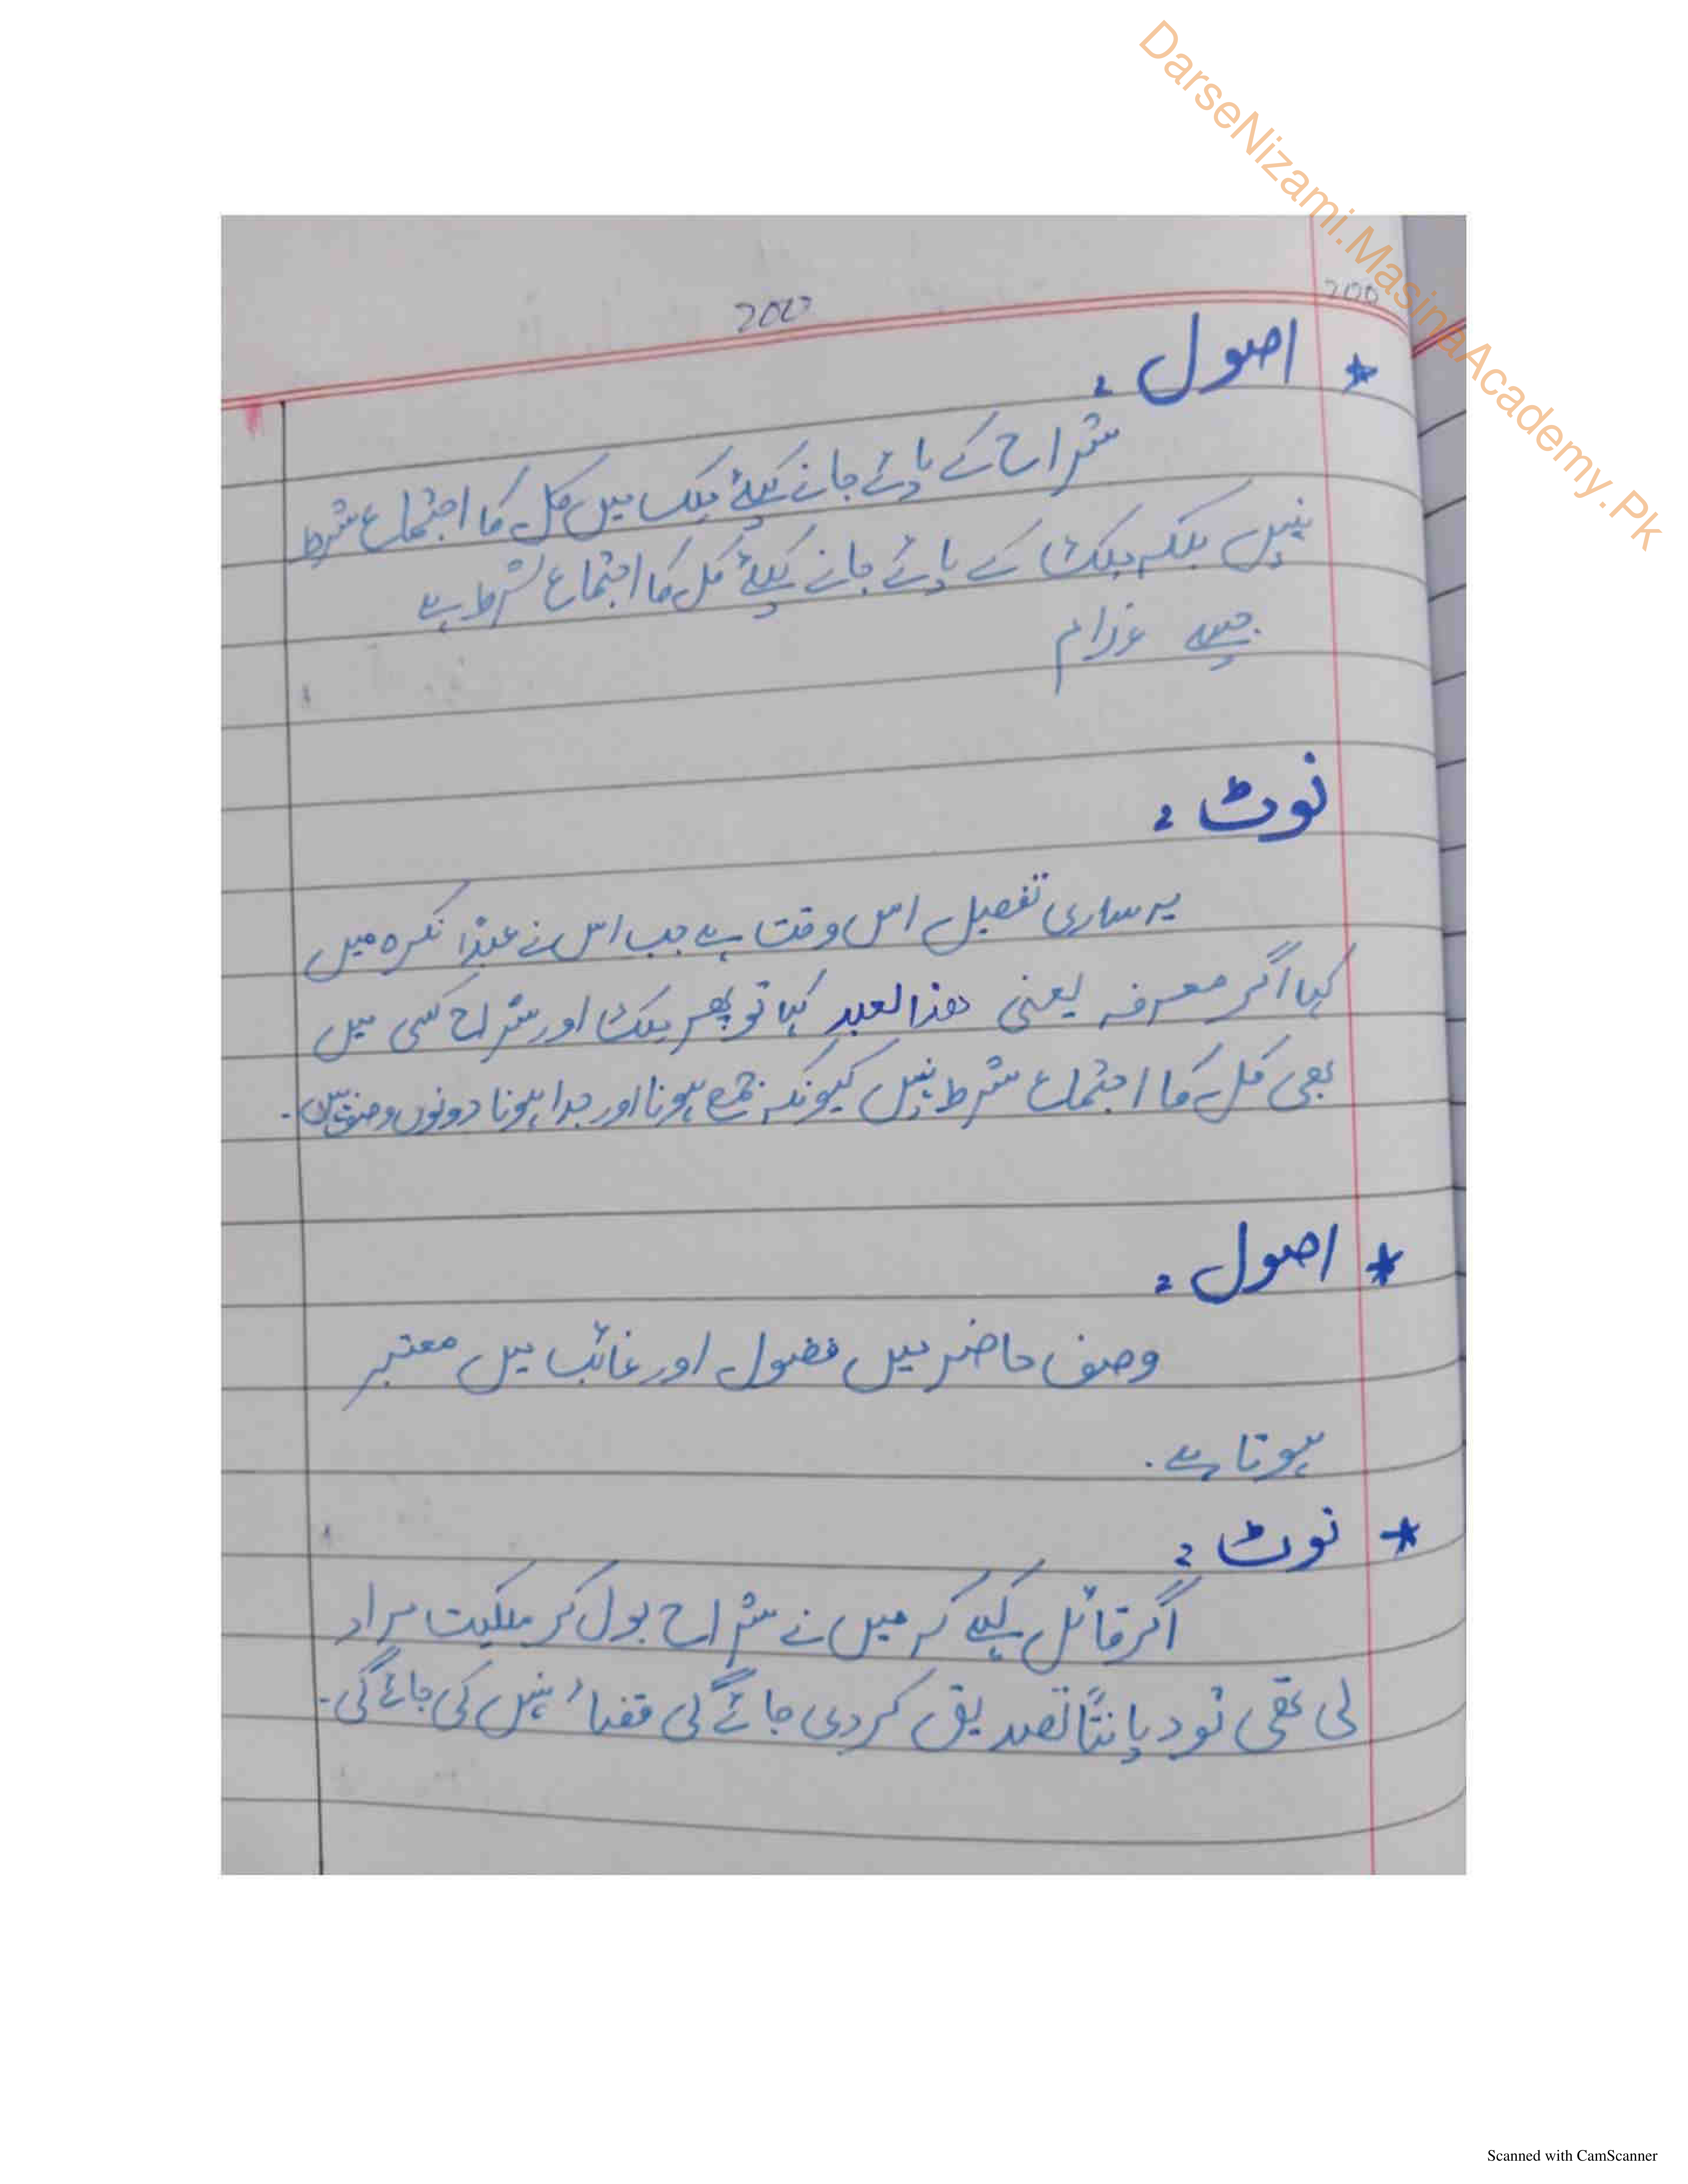 DarseNizami.MasinaAcademy.Pk
200
* اصول :
شراح کے پائے جانے کیلئے ملک میں کل کا اجتماع شرط
نہیں بلکہ ملک کے پائے جانے کیلئے کل کا اجتماع شرط ہے
جیسے
نوٹ :
یہ ساری تفصیل اس وقت ہے جب اس نے عبدًا نکرہ میں
کہا اگر معرفہ یعنی ھذا العبد کہا تو پھر ملک اور شراح کسی میں
بھی کل کا اجتماع شرط نہیں کیونکہ جمع ہونا اور جدا ہونا دونوں وصف ہیں۔
* اصول :
وصف حاضر میں فضول اور غائب میں معتبر
ہوتا ہے۔
* نوٹ :
اگر قائل کہے کہ میں نے شراح بول کر ملکیت مراد
لی تھی تو دیانتًا تصدیق کر دی جائے گی قضاءً نہیں کی جائے گی۔
Scanned with CamScanner